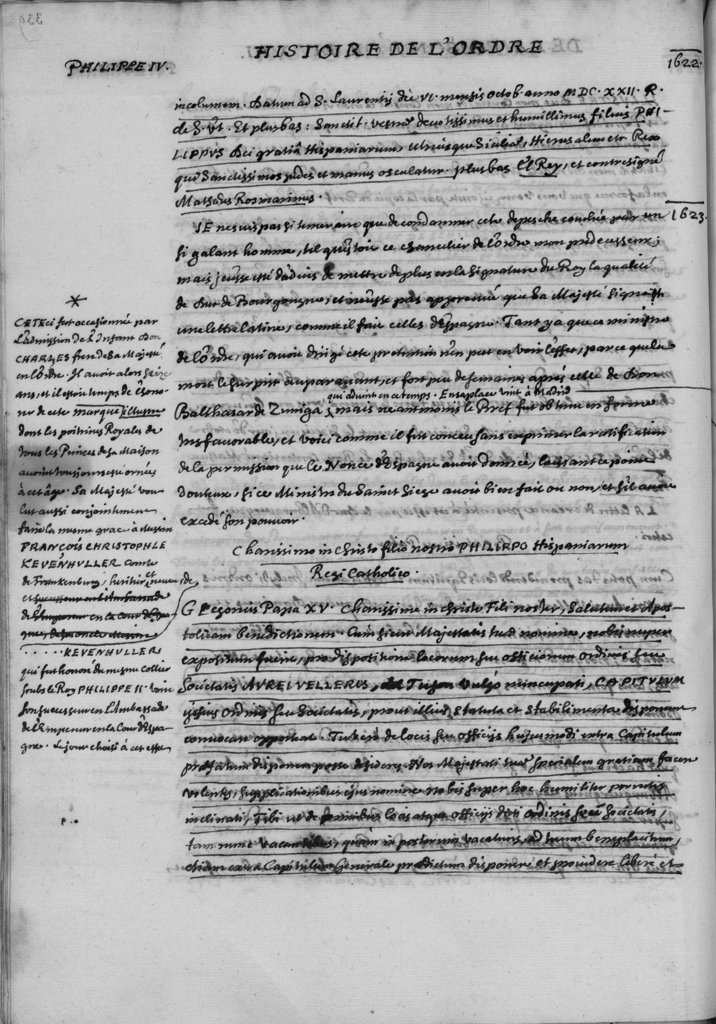 339
HISTOIRE DE L'ORDRE
PHILIPPE IV.
1622.
incolumem. Datum ad S. Laurentij die VI. mensis Octob. anno MDC.XXII. R.
de S. Vt. Et plus bas: Sanctit. vestræ deuotissimus et humillimus filius PHI-
LIPPVS Dei gratia Hispaniarum, utriusque Siciliæ, Hierusalem etc Rex
qui Sanctissimos pedes et manus osculatur. plus bas El Rey, et contresigné
Matthæus Rosmarinus.
1623.
JE ne suis pas si temeraire que de condamner cete depesche couchée par un
si galant homme, tel qu'estoit ce chancelier de l'ordre mon predecesseur;
mais j'eusse esté d'aduis de mettre de plus en la signature du Roy la qualité
de Duc de Bourgongne, et n'eusse pas approuué que Sa Majesté signast
une lettre latine, comme il fait celles d'Espagne. Tant y a que ce ministre
de l'ordre, qui auoit dirigé cete pretention n'en peut en voir l'effet, par ce que la
mort leharpit auparauant, et fort peu de semaines aprés celle de Don
qui aduint en ce temps. En sa place vint à Madrid
Balthasar de Zuniga, mais neantmoins le Bref fut obtenu en forme
tres fauorable, et voici comme il fut conceu sans exprimer la ratification
de la permission que le Nonce d'Espagne auoit donnée, laissant ce point
douteux, si ce Ministre du Saint Siege auoit bien fait ou non, et s'il auoit
excedé son pouuoir.
Charissimo in Christo filio nostro PHILIPPO Hispaniarum
Regi Catholico.
GREgorius Papa XV. Charissime in Christo Fili noster, Salutem et Apos-
tolicam benedictionem. Cum sicut Majestatis tuæ nomine, nobis nuper
expositum fuit, pro dispositione locorum seu officiorum ordinis seu
Societatis AUREI VELLERIS, Tuson vulgo nuncupati, CAPITULUM
ipsius Ordinis seu Societatis, prout illius statuta et stabilimenta disponunt
conuocare oporteat. Tu vero de locis seu officijs hujusmodi extra Capitulum
præfatum disponere posse desideres. Nos Majestati tuæ specialem gratiam facere
volentes, supplicationibus ejus nomine nobis super hoc humiliter porrectis
inclinati, Tibi ut de omnibus locis atque officijs dicti ordinis seu Societatis,
tam nunc vacantibus, quam in posterum vacaturis, ad tuum beneplacitum,
etiam extra Capitulum Generale prædictum disponere et prouidere libere et
*
CETE ci fut occasionné par
l'admission de l'Infant Don
CHARLES frere de Sa Majesté
en l'ordre. Il auoit alors seize
ans, et il estoit temps de l'hono-
rer de cete marque illustre
dont les poitrines Royales de
tous les Princes de sa Maison
auoient tousjours esté ornées
à cet âge. Sa Majesté vou-
lut aussi conjointement
faire la mesme grace à Messire
FRANÇOIS CHRISTOPHLE
KEVENHULLER Comte
de Frankenburg, heritier et neueu de
et successeur en l'Ambassade
de l'Empereur en la cour d'Espa-
gne,
...... KEVENHULLER
qui fut honoré du mesme Collier
soubs le Roy PHILIPPE II. voire
son successeur en l'Ambassade
de l'Empereur en la Cour d'Espa-
gne. Le jour choisi à cet effet